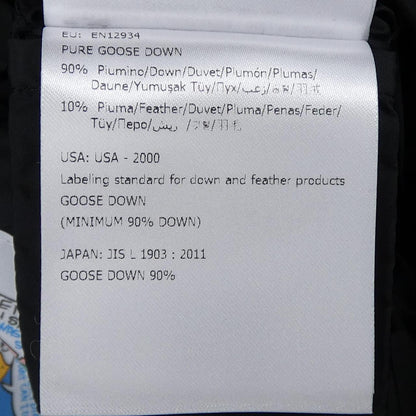 EU: EN12934
PURE GOOSE DOWN
90% Piumino/Down/Duvet/Plumón/Plumas/
Daune/Yumuşak Tüy/Пух/زغب/
10% Piuma/Feather/Duvet/Pluma/Penas/Feder/
Tüy/Перо/ريش/
USA: USA - 2000
Labeling standard for down and feather products
GOOSE DOWN
(MINIMUM 90% DOWN)
JAPAN: JIS L 1903 : 2011
GOOSE DOWN 90%